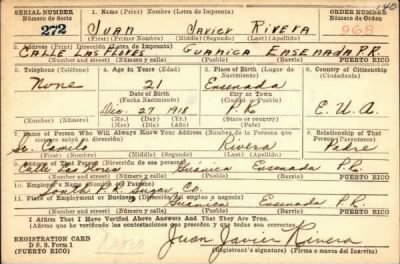 SERIAL NUMBER 1. Name (Print) Nombre (Letra de Imprenta) ORDER NUMBER
Número de Serie Número de Orden
272 JUAN JAVIER RIVERA 968
(First) (Primer Nombre) (Middle) (Segundo) (Last) (Apellido)
2. Address (Print) Dirección (Letra de Imprenta)
CALLE LAS FLORES GUANICA ENSENADA P.R.
(Number and street) (Número y calle) PUERTO RICO
3. Telephone (Teléfono) 4. Age in Years (Edad) 5. Place of Birth (Lugar de Nacimiento) 6. Country of Citizenship (Ciudadanía)
None 21 Ensenada
Date of Birth City or Town
(Fecha Nacimiento) (Ciudad o Pueblo)
Dec. 27 1918 P.R. E. U. A.
(Mo.) (Day) (Yr.)
(Mes) (Día) (Año)
7. Name of Person Who Will Always Know Your Address (Nombre de la Persona que siempre sabrá su dirección) 8. Relationship of That Person (Parentesco)
Sr. Camilo Rivera Padre
(First) (Middle) (Segundo) (Last) (Apellido)
9. Address of That Person (Dirección de esa persona)
Calle Las Flores Guánica Ensenada P.R.
(Number and street) (Número y calle) PUERTO RICO
10. Employer's Name (Nombre del Patrono)
South P. R. Sugar Co.
11. Place of Employment or Business
Guanica Ensenada P.R.
(Number and street) (Número y calle) PUERTO RICO
I Affirm That I Have Verified Above Answers And That They Are True.
(Afirmo que he verificado las contestaciones que preceden y que todas son ciertas)
REGISTRATION CARD
D. S. S. Form 1
Juan Javier Rivera
PUERTO RICO Registrant's signature (Firma del inscrito)